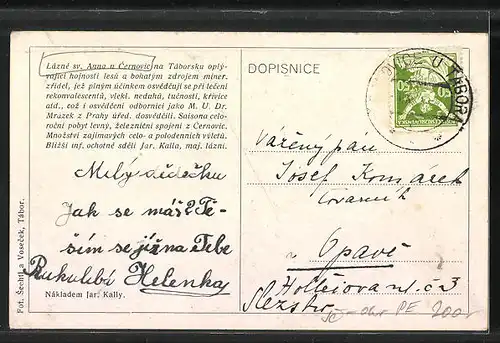 Lázně sv. Anna u Černovic na Táborsku oplý-
vající hojností lesů a bohatým zdrojem miner.
zřídel, jež plným účinkem osvědčují se při léčení
rekonvalescentů, vlekl. neduhů, tučnosti, křivice
atd., což i osvědčeni odborníci jako M. U. Dr.
Mrazek z Prahy úřed. dosvědčili. Saisona celo-
roční pobyt levný, železniční spojení z Černovic.
Množství zajímavých celo- a polodenních výletů.
Bližší inf. ochotně sdělí Jar. Kalla, maj. lázní.
Milý dědečku
Jak se máš? Tě-
ším se již na Tebe
Rukulíbá Helenka
Nákladem Jar. Kally.
Fot. Šechtl a Voseček, Tábor.
DOPISNICE
U TÁBORA
50 50
Vážený pán
Josef Komarek
továrník
v Opavě
Slezsko
200